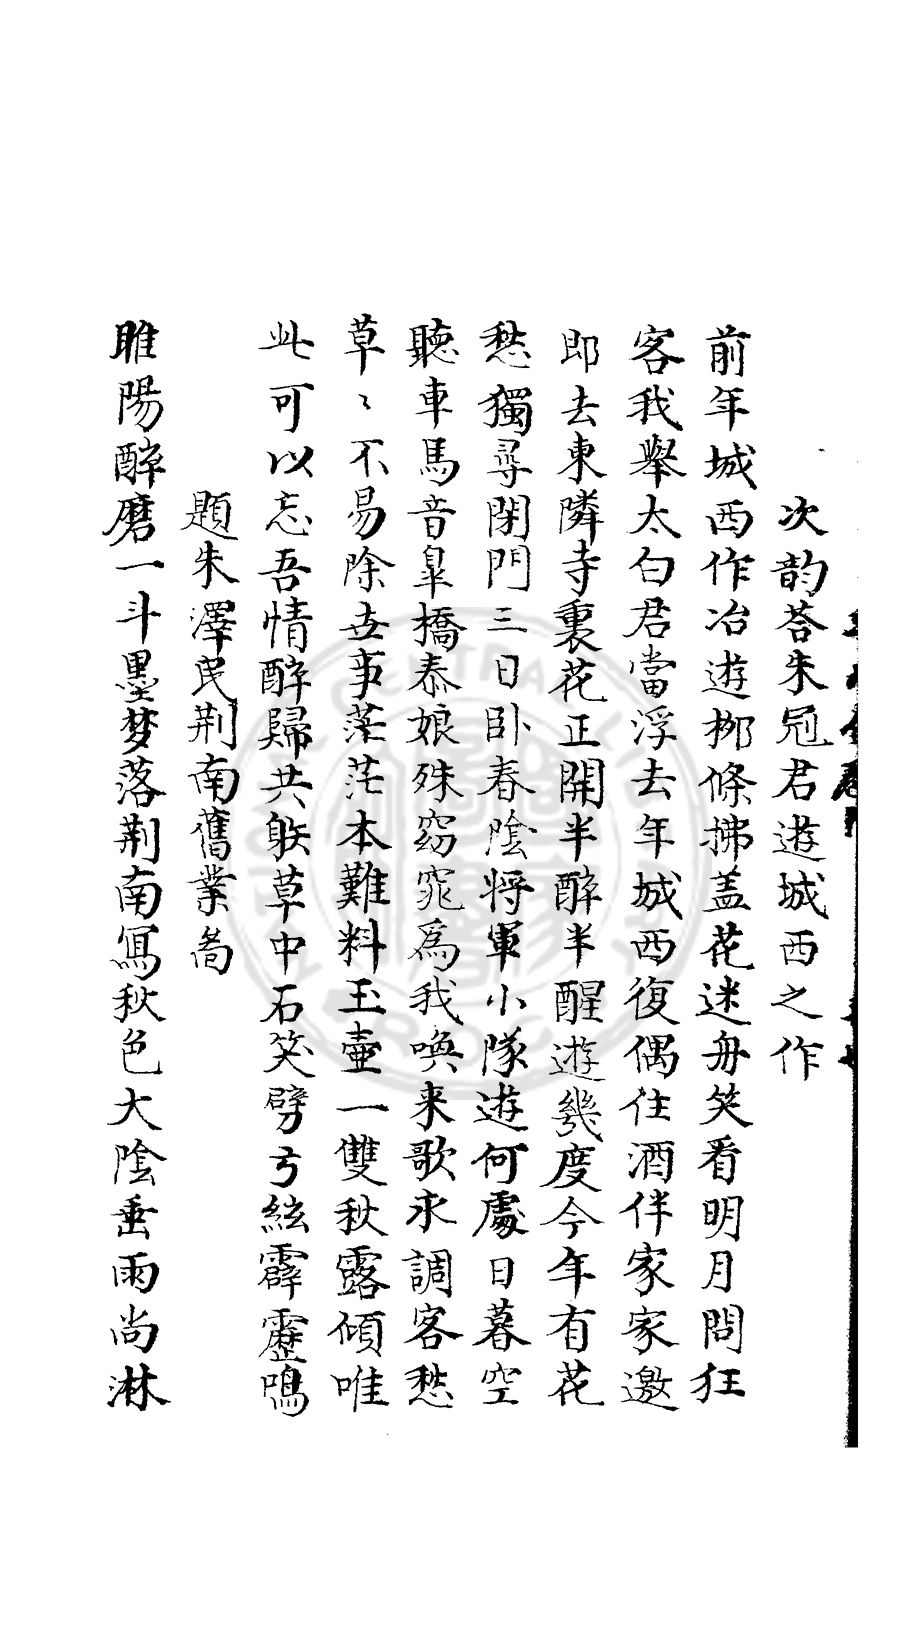 次韵荅朱冠君遊城西之作
前年城西作冶遊柳條拂盖花迷舟笑看明月問狂
客我舉太白君當浮去年城西復偶住酒伴家家邀
即去東隣寺裏花正開半醉半醒遊幾度今年有花
愁獨尋閉門三日卧春陰将軍小隊遊何處日暮空
聽車馬音臯橋泰娘殊窈窕爲我喚来歌永調客愁
草〻不易除世事茫茫本難料玉壷一雙秋露傾唯
此可以忘吾情醉歸共躲草中石笑劈弓絃霹靂鳴
題朱澤民荆南舊業啚
睢陽醉磨一斗墨梦落荆南冩秋色大陰垂雨尚淋